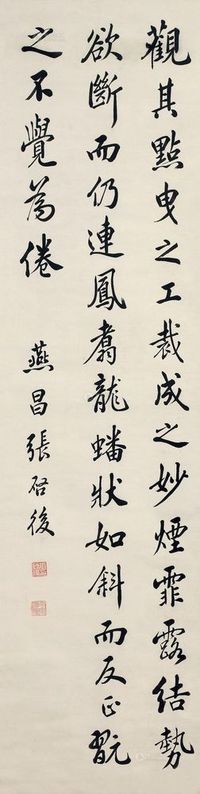 觀其點曳之工裁成之妙煙霏露結勢
欲斷而仍連鳳翥龍蟠狀如斜而反正翫
之不覺為倦
燕昌張啓後